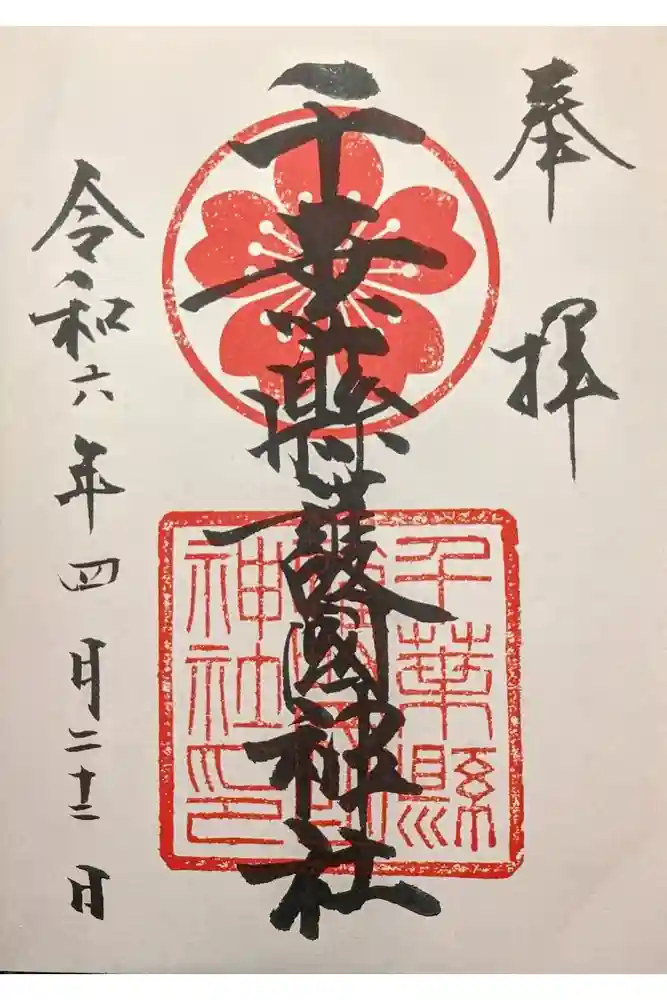 奉拝
千葉縣護國神社
千葉縣
神社印
令和六年四月二十二日